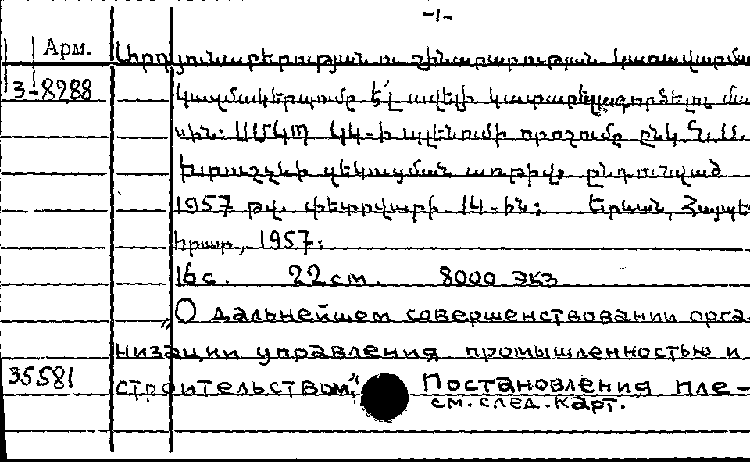 -1-
Арм. Արդյունաբերության ու շինարարության կառավարման
3-8988 կազմակերպումը էլ ավելի կատարելագործելու մա
սին: ՍՄԿՊ ԿԿ-ի պլենումի որոշումը ընկ. Ն. Ս.
Խրուշչևի զեկուցման առթիվ, ընդունված
1957 թվ. փետրվարի 14-ին: Երևան, Հայպե
հրատ, 1957:
16 с. 22 см. 8000 экз
„О дальнейшем совершенствовании орга
низации управления промышленностью и
35581 строительством." Постановления пле-
см. след. карт.